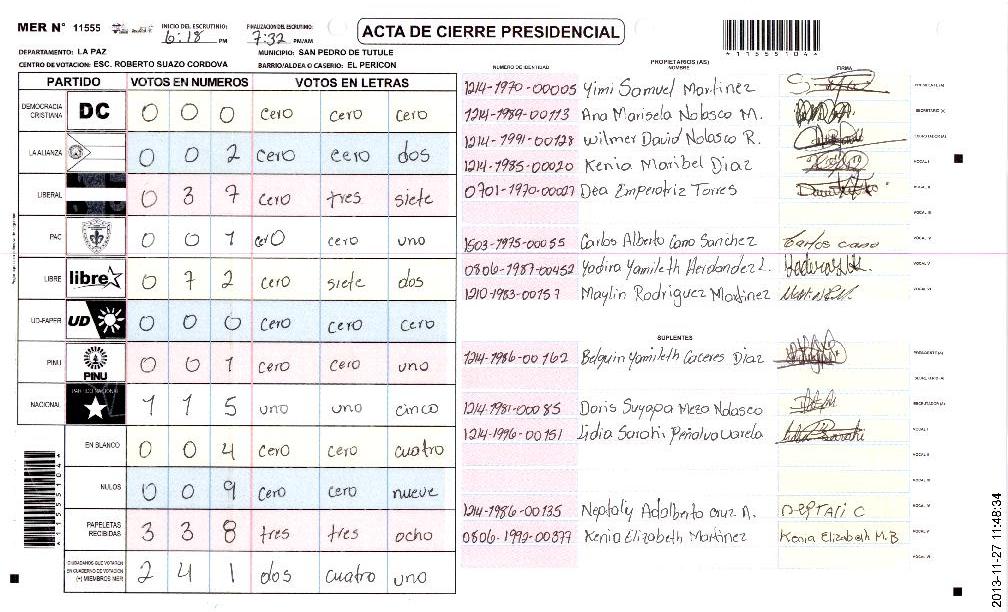 MER N° 11555 INICIO DEL ESCRUTINIO: 6:18 PM FINALIZACION DEL ESCRUTINIO: 7:32 PM/AM
ACTA DE CIERRE PRESIDENCIAL
DEPARTAMENTO: LA PAZ MUNICIPIO: SAN PEDRO DE TUTULE
CENTRO DE VOTACION: ESC. ROBERTO SUAZO CORDOVA BARRIO/ALDEA O CASERIO: EL PERICON
PARTIDO VOTOS EN NUMEROS VOTOS EN LETRAS
DEMOCRACIA CRISTIANA DC 0 0 0 cero cero cero
LA ALIANZA 0 0 2 cero cero dos
LIBERAL 0 3 7 cero tres siete
PAC 0 0 1 cero cero uno
LIBRE libre 0 7 2 cero siete dos
UD-FAPER UD 0 0 0 cero cero cero
PINU PINU 0 0 1 cero cero uno
NACIONAL 1 1 5 uno uno cinco
EN BLANCO 0 0 4 cero cero cuatro
NULOS 0 0 9 cero cero nueve
PAPELETAS RECIBIDAS 3 3 8 tres tres ocho
CIUDADANOS QUE VOTARON EN CUADERNO DE VOTACION (+) MIEMBROS MER 2 4 1 dos cuatro uno
PROPIETARIOS (AS)
NUMERO DE IDENTIDAD NOMBRE FIRMA
1214-1970-00005 Yimi Samuel Martinez PRESIDENTE (A)
1214-1989-00113 Ana Marisela Nolasco M. SECRETARIO (A)
1214-1991-00128 Wilmer David Nolasco R. ESCRUTADOR (A)
1214-1985-00020 Kenia Maribel Diaz VOCAL I
0701-1970-00027 Dea Emperatriz Torres VOCAL II
VOCAL III
1503-1975-00055 Carlos Alberto Cano Sanchez Carlos cano VOCAL IV
0806-1987-00452 Yadira Yamileth Herdandez L. VOCAL V
1210-1983-00157 Maylin Rodriguez Martinez VOCAL VI
SUPLENTES
1214-1986-00162 Belguin Yamileth Caceres Diaz PRESIDENTE (A)
SECRETARIO (A)
1214-1981-00085 Doris Suyapa Meza Nolasco ESCRUTADOR (A)
1214-1996-00151 Lidia Sarahi Peñalva Varela Lidia Sarahi VOCAL I
VOCAL II
VOCAL III
1214-1986-00135 Neptaly Adalberto Cruz A. NEPTALI C VOCAL IV
0806-1992-00377 Kenia Elizabeth Martinez Kenia Elizabeth M.B VOCAL V
VOCAL VI
2013-11-27 11:48:34